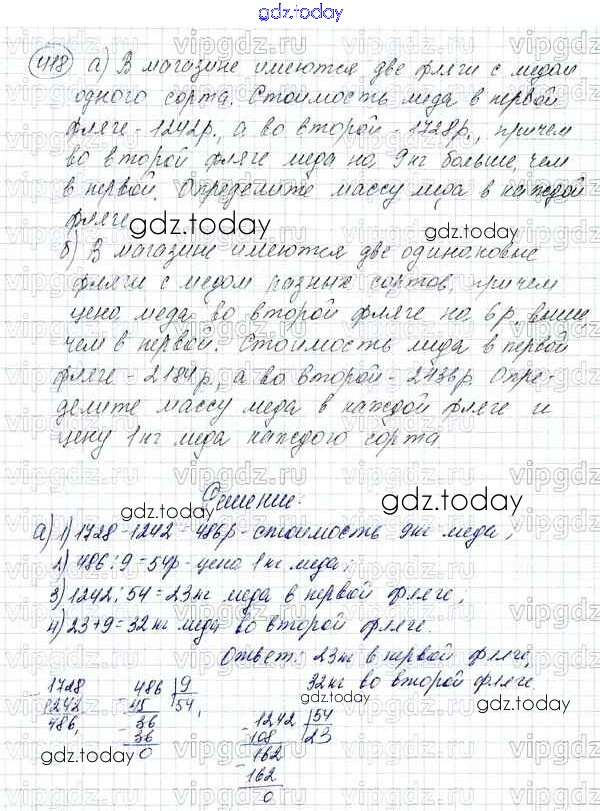 gdz.today
418 а) В магазине имеются две фляги с медом
одного сорта. Стоимость меда в первой
фляге - 1242р., а во второй - 1728р., причем
во второй фляге меда на 9кг больше, чем
в первой. Определите массу меда в каждой
фляге.
gdz.today
б) В магазине имеются две одинаковые
фляги с медом разных сортов, причем
цена меда во второй фляге на 6р выше,
чем в первой. Стоимость меда в первой
фляге - 2184р, а во второй - 2436р. Опре-
делите массу меда в каждой фляге и
цену 1кг меда каждого сорта
Решение:
gdz.today
gdz.today
а) 1) 1728-1242=486р - стоимость 9кг меда;
2) 486:9=54р - цена 1кг меда;
3) 1242:54=23кг меда в первой фляге;
4) 23+9=32кг меда во второй фляге.
Ответ: 23кг в первой фляге,
32кг во второй фляге.
1728 486 9
- 1242 - 45 54
486 36 1242 54
- 36 - 108 23
0 162
- 162
0
gdz.today
gdz.today
gdz.today